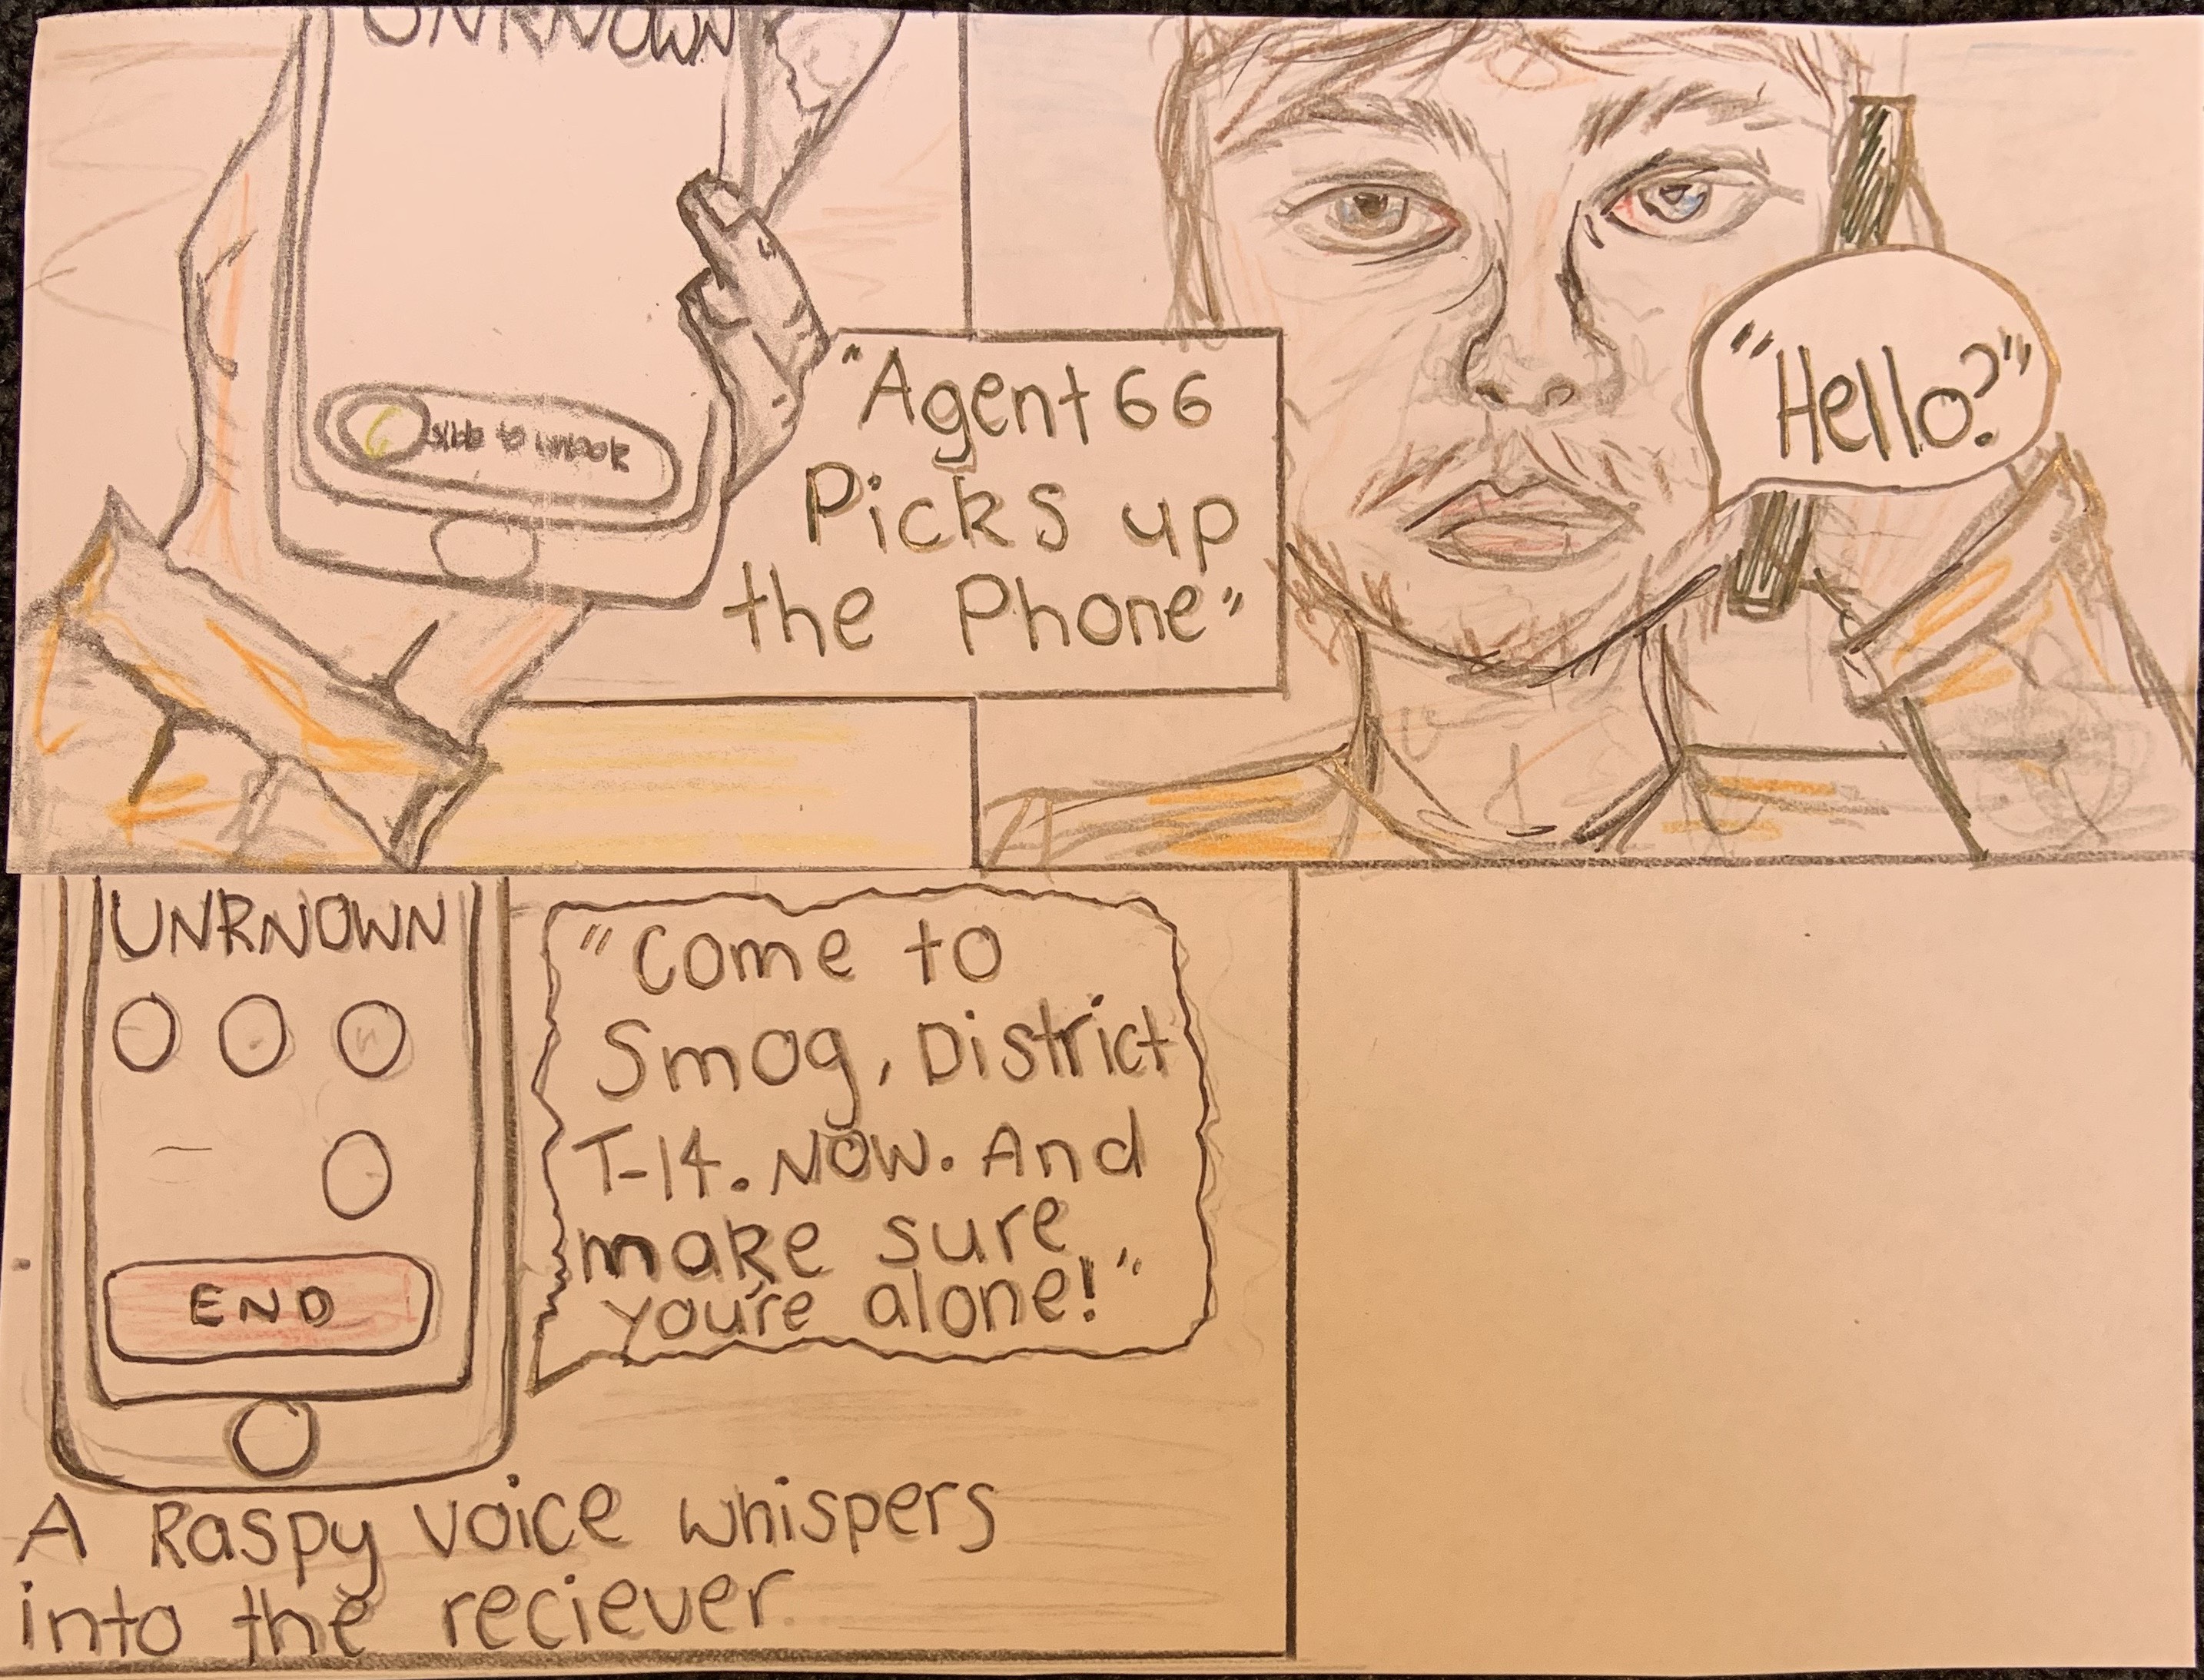 UNKNOWN
slide to unlock
"Agent 66
Picks up
the Phone"
"Hello?"
UNKNOWN
END
"Come to
Smog, District
T-14. NOW. And
make sure
you're alone!"
A Raspy voice whispers
into the reciever.